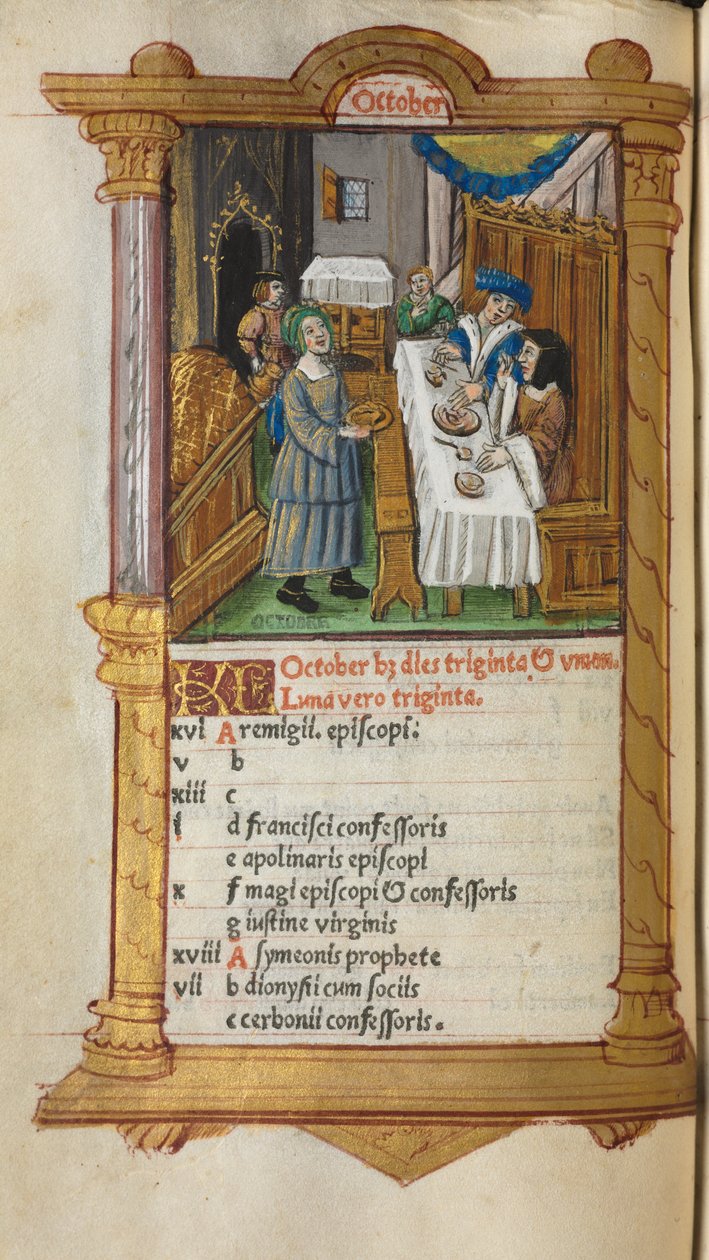 October
OCTOBRE
KL October bꝫ dies triginta & vnum.
Luna vero triginta.
xvi A remigii. episcopi:
v b
xiii c
i d francisci confessoris
e apolinaris episcopi
x f magi episcopi & confessoris
g iustine virginis
xviii A symeonis prophete
vii b dionysii cum sociis
c cerbonii confessoris.